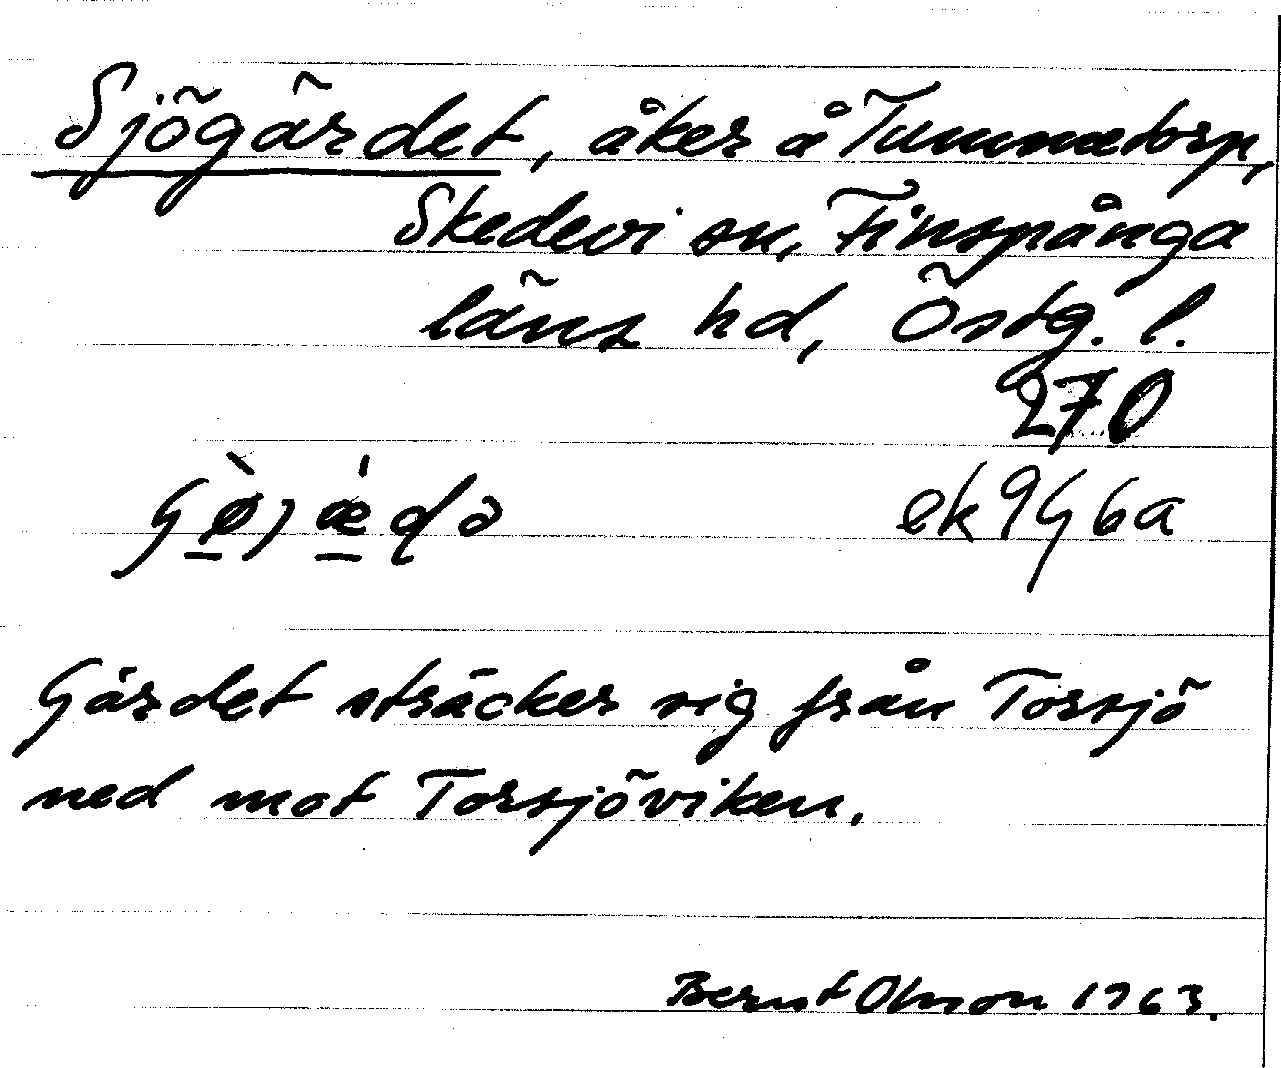 Sjögärdet, åker å Tummetorp,
Skedevi sn, Finspånga
läns hd, Östg. l.
270
ek 9G6a
Gärdet sträcker sig från Torsjö
ned mot Torsjöviken.
Bernt Olsson 1963.